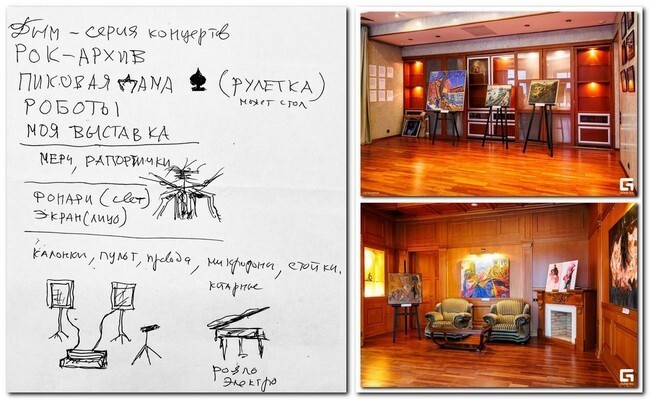 Дым – серия концертов
РОК-АРХИВ
ПИКОВАЯ ДАМА ♠ (РУЛЕТКА)
может стол
РОБОТЫ
МОЯ ВЫСТАВКА
МЕРЧ, РАПОРТИЧКИ
ФОНАРИ (свет)
ЭКРАН (лицо)
КАЛОНКИ, ПУЛЬТ, провода, микрофоны, стойки.
РОЯЛЬ
Электро